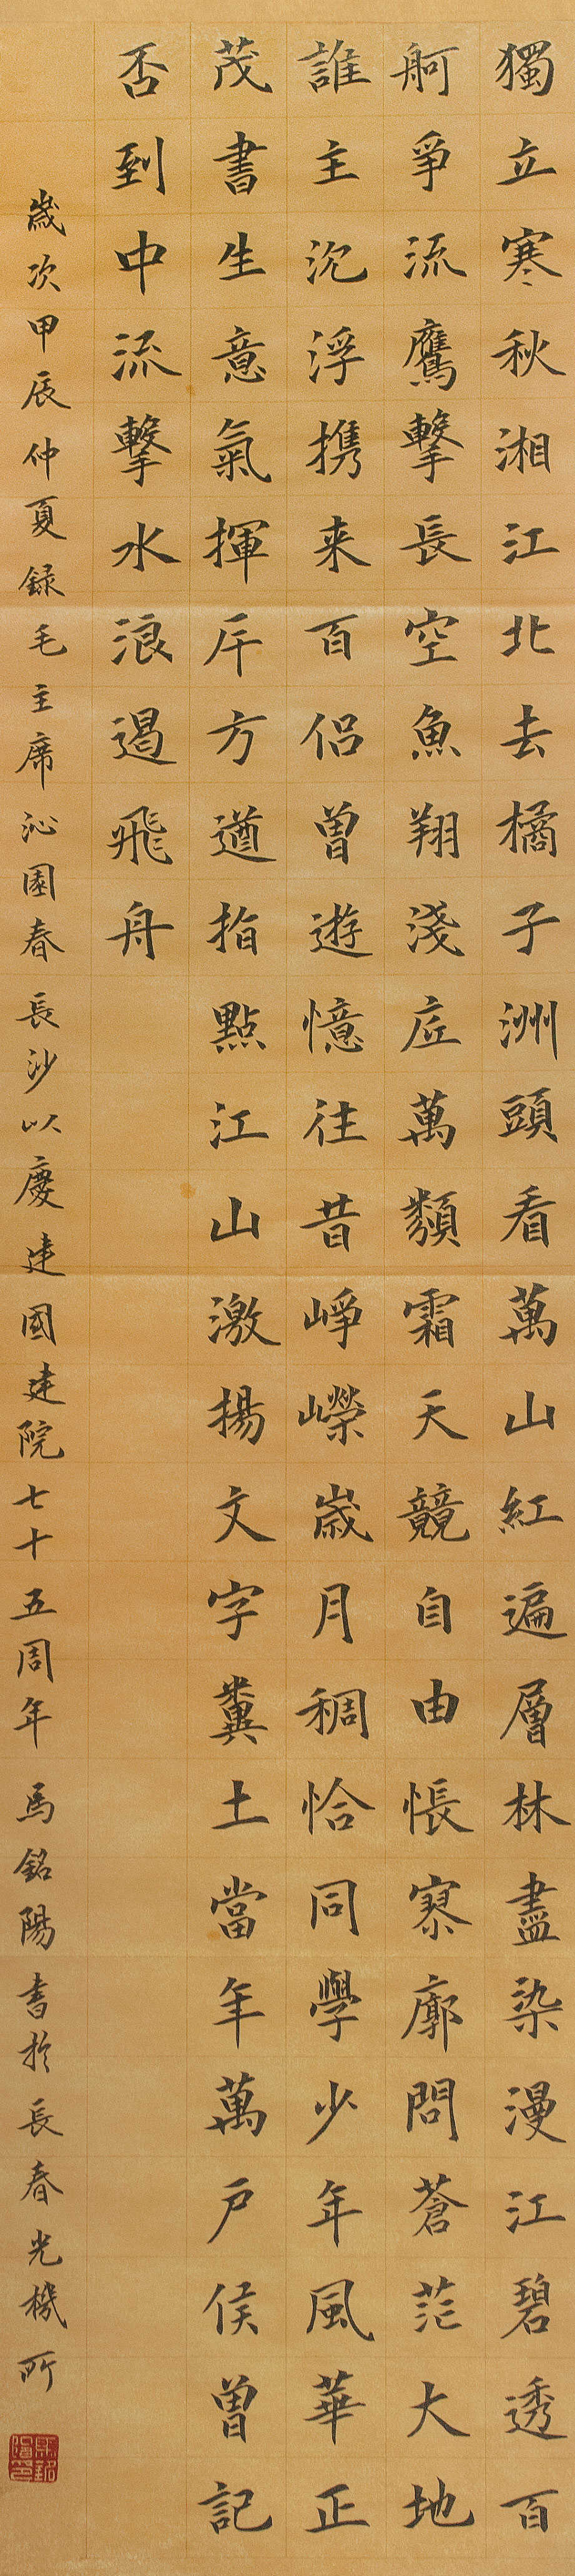 獨立寒秋湘江北去橘子洲頭看萬山紅遍層林盡染漫江碧透百
舸爭流鷹擊長空魚翔淺底萬類霜天競自由悵寥廓問蒼茫大地
誰主沉浮携来百侶曾遊憶往昔崢嶸歲月稠恰同學少年風華正
茂書生意氣揮斥方遒指點江山激揚文字糞土當年萬戶侯曾記
否到中流擊水浪遏飛舟
歲次甲辰仲夏録毛主席沁園春長沙以慶建國建院七十五周年馬銘陽書於長春光機所
馬銘陽印